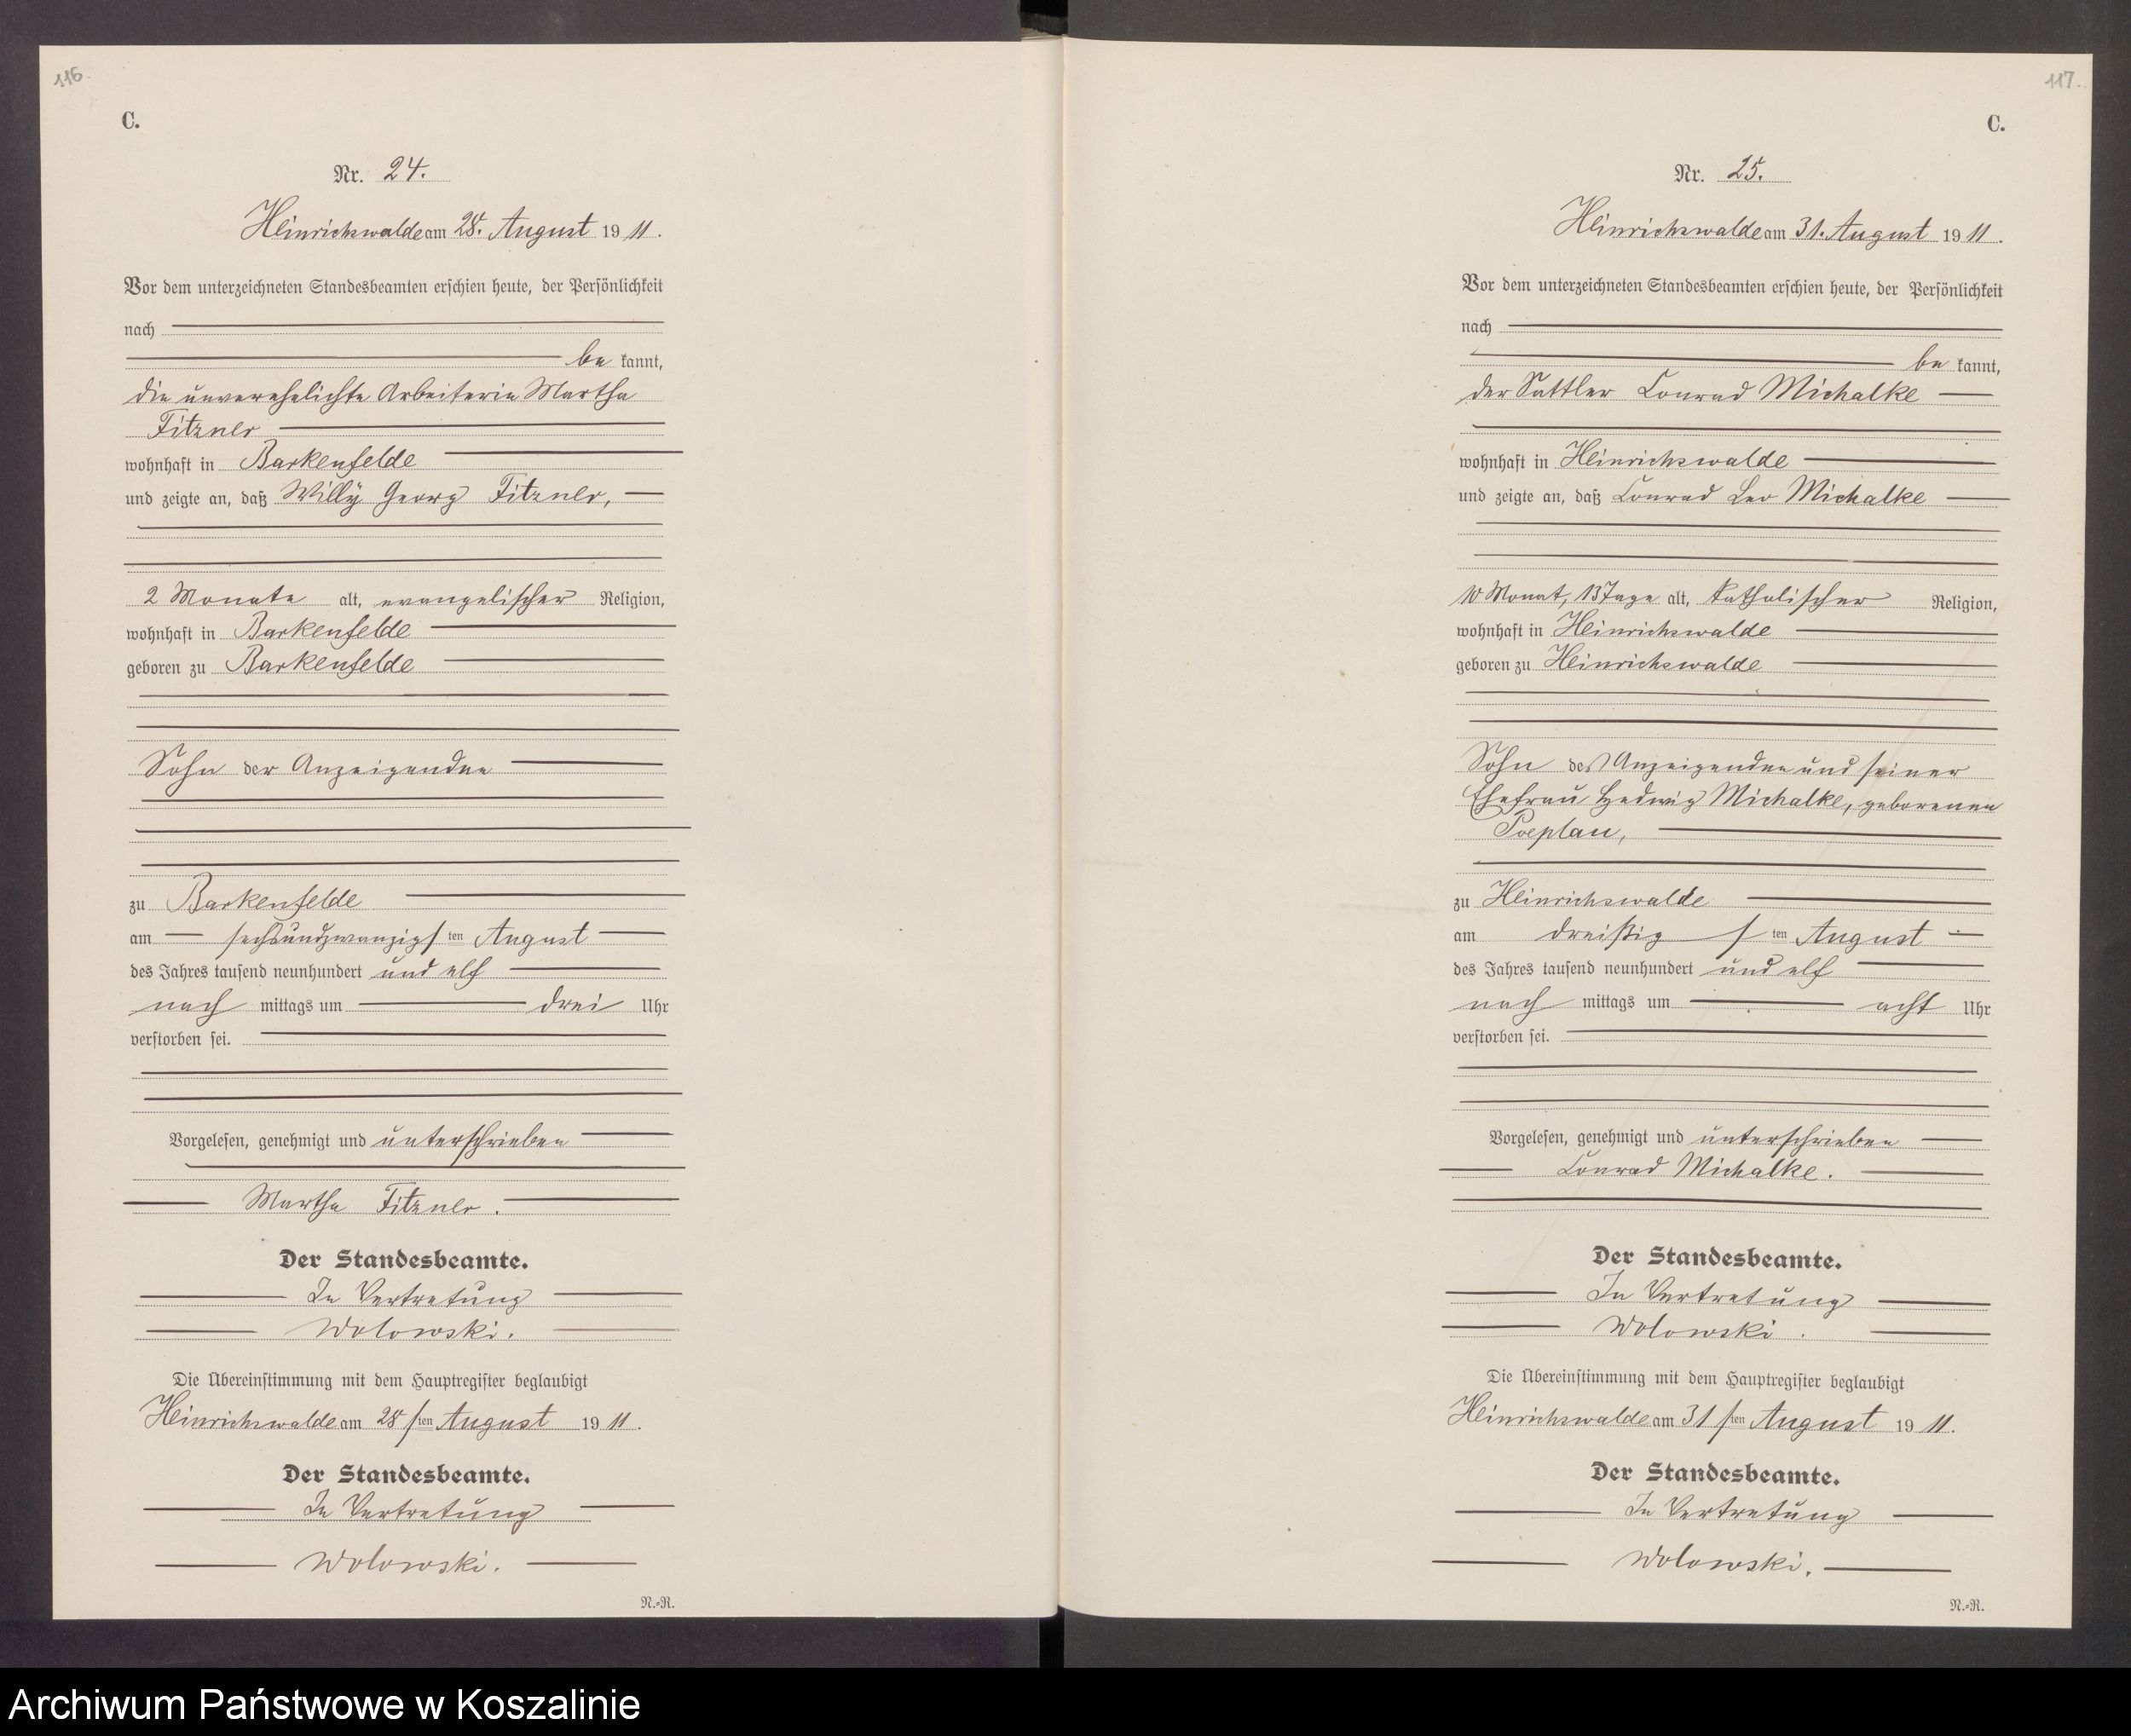 116.
C.
Nr. 24.
Heinrichswalde am 28. August 1911.
Vor dem unterzeichneten Standesbeamten erschien heute, der Persönlichkeit
nach
be kannt,
die unverehelichte Arbeiterin Martha
Fitzner
wohnhaft in Barkenfelde
und zeigte an, daß Willÿ Georg Fitzner,
2 Monate alt, evangelischer Religion,
wohnhaft in Barkenfelde
geboren zu Barkenfelde
Sohn der Anzeigenden
zu Barkenfelde
am sechsundzwanzigsten August
des Jahres tausend neunhundert und elf
nach mittags um drei Uhr
verstorben sei.
Vorgelesen, genehmigt und unterschrieben
Martha Fitzner.
Der Standesbeamte.
In Vertretung
Wolowski.
Die Übereinstimmung mit dem Hauptregister beglaubigt
Heinrichswalde am 28sten August 1911.
Der Standesbeamte.
In Vertretung
Wolowski.
N.-R.
117.
C.
Nr. 25.
Heinrichswalde am 31. August 1911.
Vor dem unterzeichneten Standesbeamten erschien heute, der Persönlichkeit
nach
be kannt,
der Sattler Conrad Michalke
wohnhaft in Heinrichswalde
und zeigte an, daß Conrad Leo Michalke
10 Monat, 13 Tage alt, katholischer Religion,
wohnhaft in Heinrichswalde
geboren zu Heinrichswalde
Sohn des Anzeigenden und seiner
Ehefrau Hedwig Michalke, geborenen
Poeplau,
zu Heinrichswalde
am dreißigsten August
des Jahres tausend neunhundert und elf
nach mittags um acht Uhr
verstorben sei.
Vorgelesen, genehmigt und unterschrieben
Conrad Michalke.
Der Standesbeamte.
In Vertretung
Wolowski.
Die Übereinstimmung mit dem Hauptregister beglaubigt
Heinrichswalde am 31sten August 1911.
Der Standesbeamte.
In Vertretung
Wolowski.
N.-R.
Archiwum Państwowe w Koszalinie